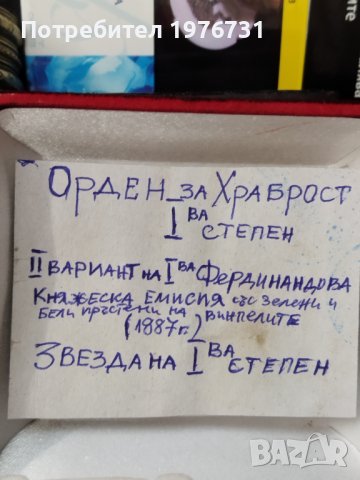 Потребител 1976731
ОРДЕН ЗА ХРАБРОСТ
I ВА СТЕПЕН
II ВАРИАНТ НА I ВА ФЕРДИНАНДОВА
КНЯЖЕСКА ЕМИСИЯ със зелени и
бели пръстени на ВИМПЕЛИТЕ
(1887г.)
ЗВЕЗДА НА I ВА СТЕПЕН
BAZAR